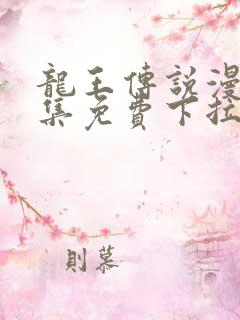 龍王傳說漫
集免費下拉
則慕